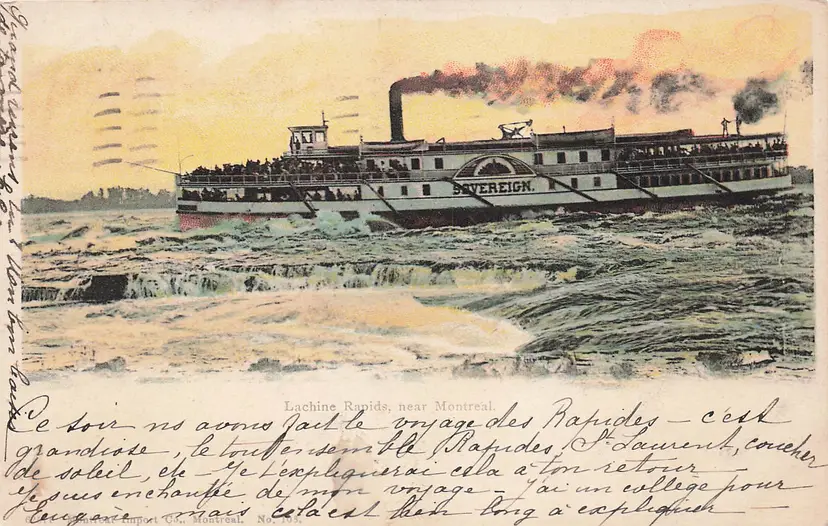 SOVEREIGN.
Lachine Rapids, near Montreal.
Ce soir ns avons fait le voyage des Rapides – c'est
grandiose, le tout ensemble, Rapides, St Laurent, coucher
de soleil, etc – Je t'expliquerai cela à ton retour –
Je suis enchantée de mon voyage – J'ai un collège pour
Eugène, mais cela est bien long à expliquer –
Montreal Import Co., Montreal. No. 103.